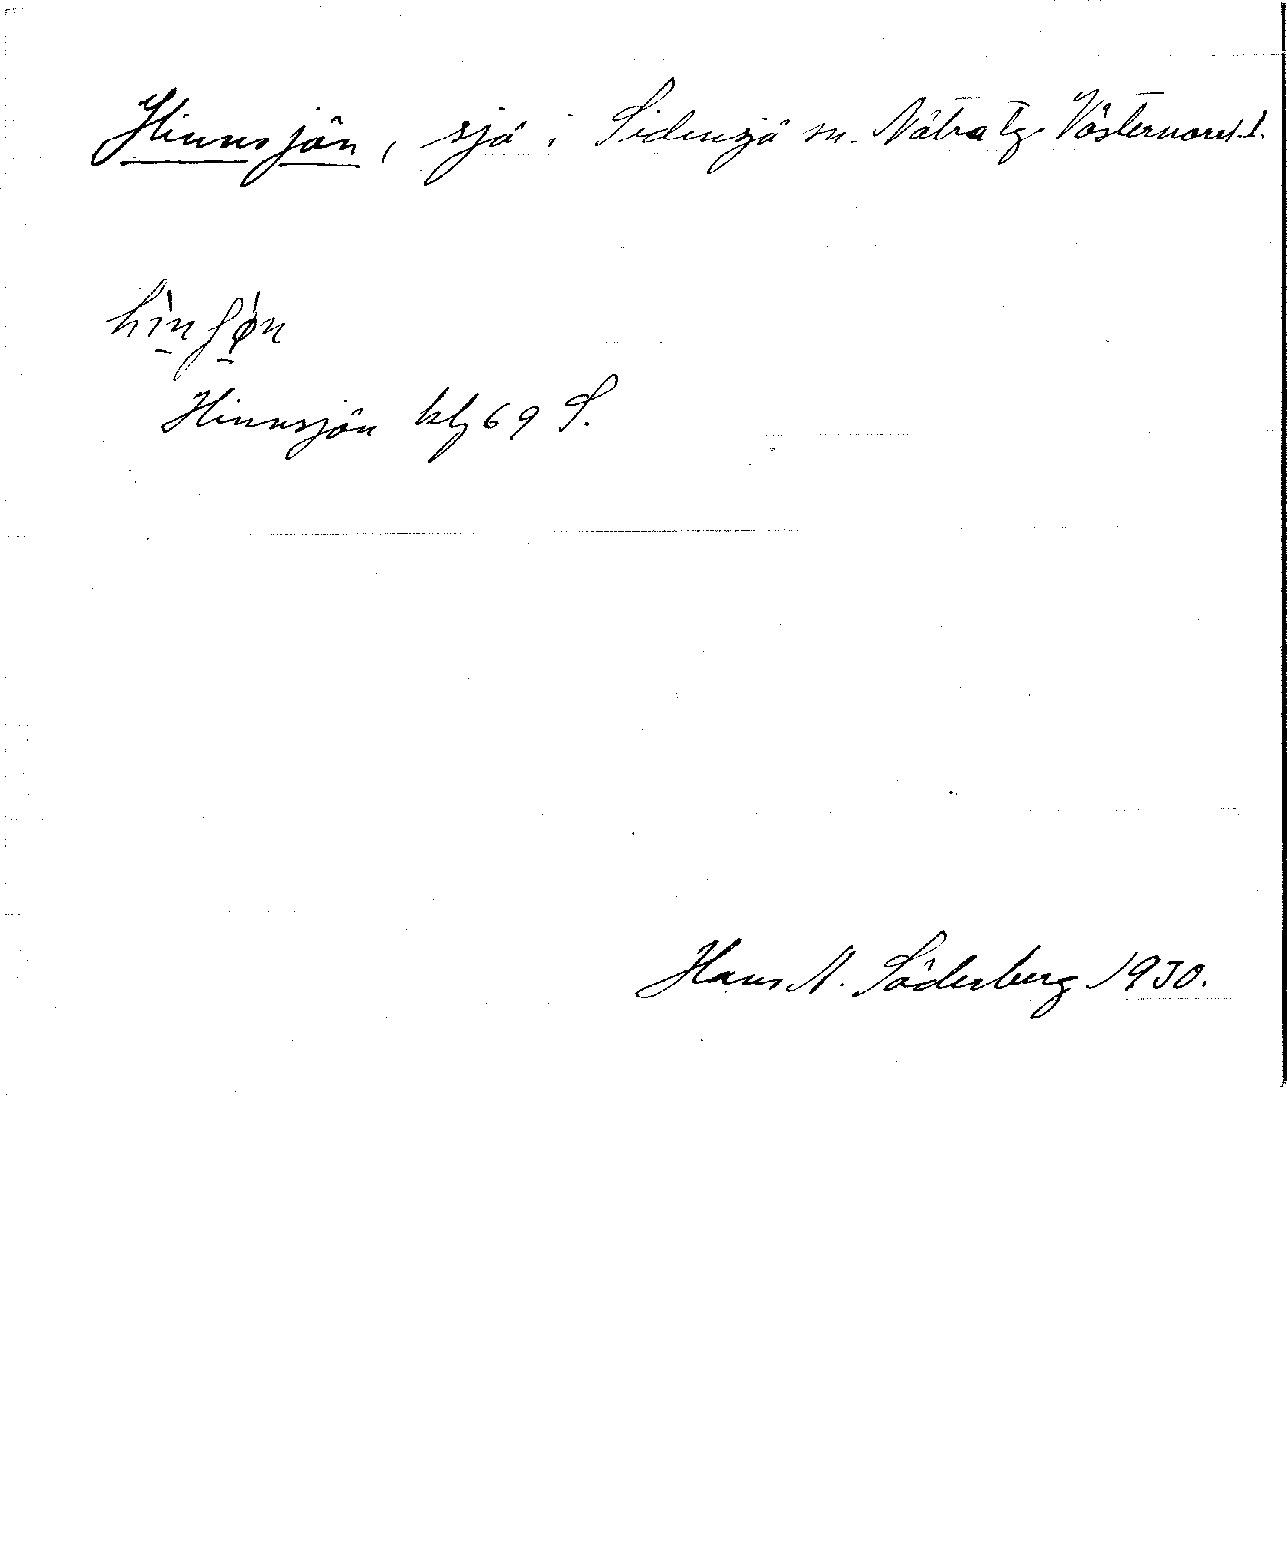 Hinnsjön, sjö i Sidensjö sn. Nätra tg. Västernorrl.l.
hìnʃø̀n
Hinnsjön kbl 69 S.
Hans N. Söderberg 1930.